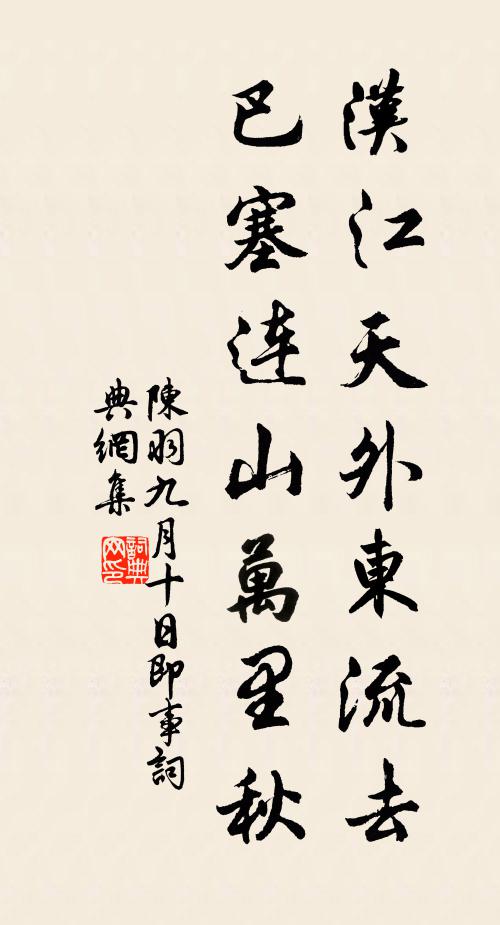 漢江天外東流去
巴塞連山萬里秋
陳羽九月十日即事詞
典網集
詞典網印